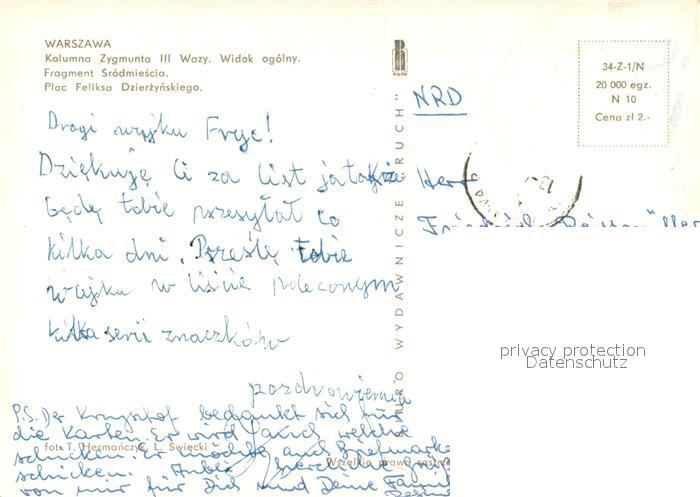 WARSZAWA
Kolumna Zygmunta III Wazy. Widok ogólny.
Fragment Śródmieścia.
Plac Feliksa Dzierżyńskiego.
Drogi wujku Fryc!
Dziękuję Ci za list ja także
będę tobie przesyłał co
kilka dni. Prześlę tobie
wujku w liście poleconym
kilka serii znaczków
pozdrowienia
P.S. Der Krzysztof bedankt sich für
die Karten. Er wird auch welche
schicken. Er möchte auch Briefmarken
schicken.
von mir für Dich und Deine Familie
fot. T. Hermańczyk, L. Święcki
Wszelkie prawa zastrz
BIURO WYDAWNICZE "RUCH"
RUCH
34-Z-1/N
20 000 egz.
N 10
Cena zł 2.-
NRD
Herr
Friedrich
privacy protection
Datenschutz